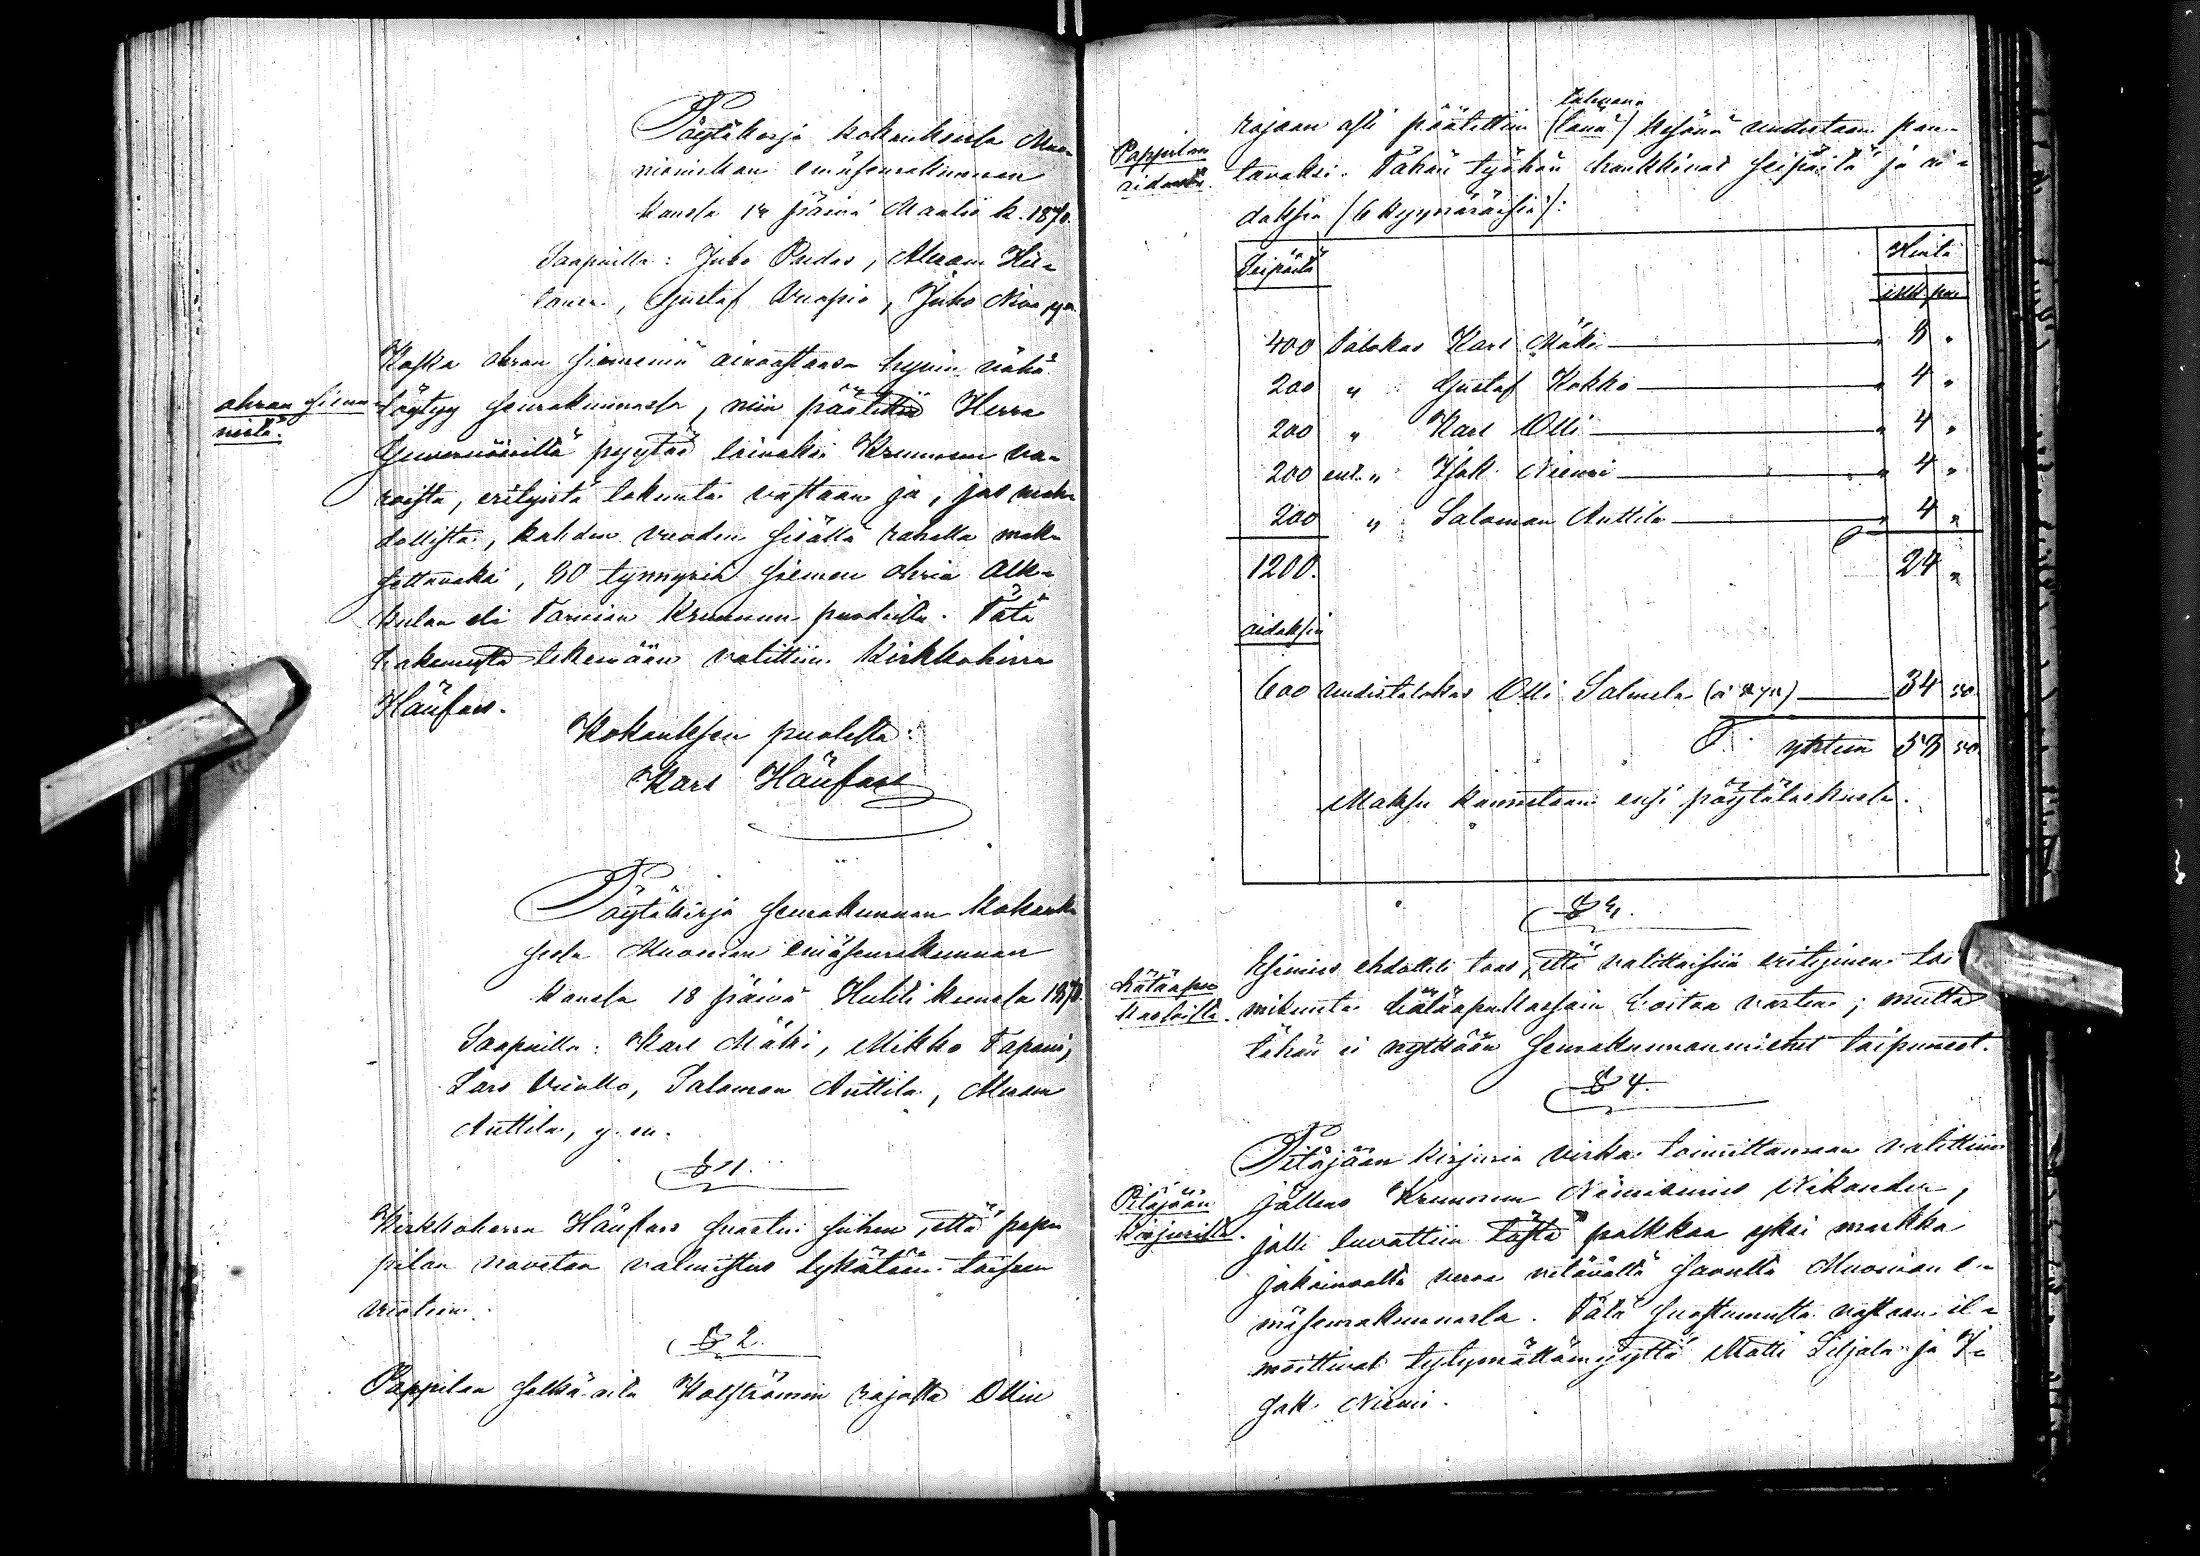 Pöytäkirja kokouksesta Muo-
nioniskan emäseurakunnan
kansa 14 päivä Maalis k. 1870.
Saapuilla: Juho Raidas, Abram Hie-
tanen, Gustaf Vuopio, Juho Niva ym.
Koska ohran siemeniä ainoastansa hyvin vähä
ohran sieme-
nistä.
löytyy seurakunnassa, niin päätettiin Herra
Guvernööriltä pyytää lainaksi Kruunun va-
roista, erityistä takuuta vastaan ja, jos mah-
dollista, kahden vuoden sisällä rahalla mak-
settavaksi, 80 tynnyriä siemen ohria Alk-
kulan eli Tornion Kruunun puodista. Tätä
hakemusta tekemään valittiin Kirkkoherra
Hänfors.
Kokouksen puolesta:
Karl Hänfors
Pöytäkirja seurakunnan Kokouk-
sesta Muonion emäseurakunnan
kansa 18 päivä Huhti kuussa 1870.
Saapuilla: Karl Mäki, Mikko Tapani,
Lars Vuollo, Salomon Anttila, Abram
Anttila, y. m.
§ 1.
Kirkkoherra Hänfors suostui siihen, että pap-
pilan navetan valmistus lykätään toiseen
vuoteen.
§ 2.
Pappilan selkä aita Kolströmin rajasta Ollin
Pappilan
aidasta.
rajaan asti päätettiin (tänä) kesänä uudestaan pan-
tulevana
tavaksi. Tähän työhön hankkivat seipäitä ja ai-
daksia (6 kyynäräisiä):
Seipäitä
Hinta
mk pen
400 Talokas Karl Mäki 8 "
200 " Gustaf Kokko 4 "
200 " Karl Olli 4 "
200 ent. " Isak Niemi 4 "
200 " Salomon Anttila 4 "
1200. 24 "
aidaksia
600 uudistalokas Olli Salmela 34 50.
yhteen 58 50
Maksu kannetaan ensi pöytälaskussa.
§ 3.
hätäapu
kassoista.
Esimies ehdotteli taas, että valittaisiin erityinen toi
mikunta hätäapukassain hoitoa varten; mutta
tähän ei nytkään seurakunnanmiehet taipuneet.
§ 4.
Pitäjään
kirjurista.
Pitäjään kirjurin virkaa toimittamaan valittiin
jällens Kruunun Nimismies Nikander,
jolle luvattiin tästä palkkaa yksi markka
jokaiselta veroa vetävältä savulta Muonion e-
mäseurakunnassa. Tätä suostumusta vastaan il-
moittivat tytymättömyyttä Matti Siljola ja I-
sak Niemi.